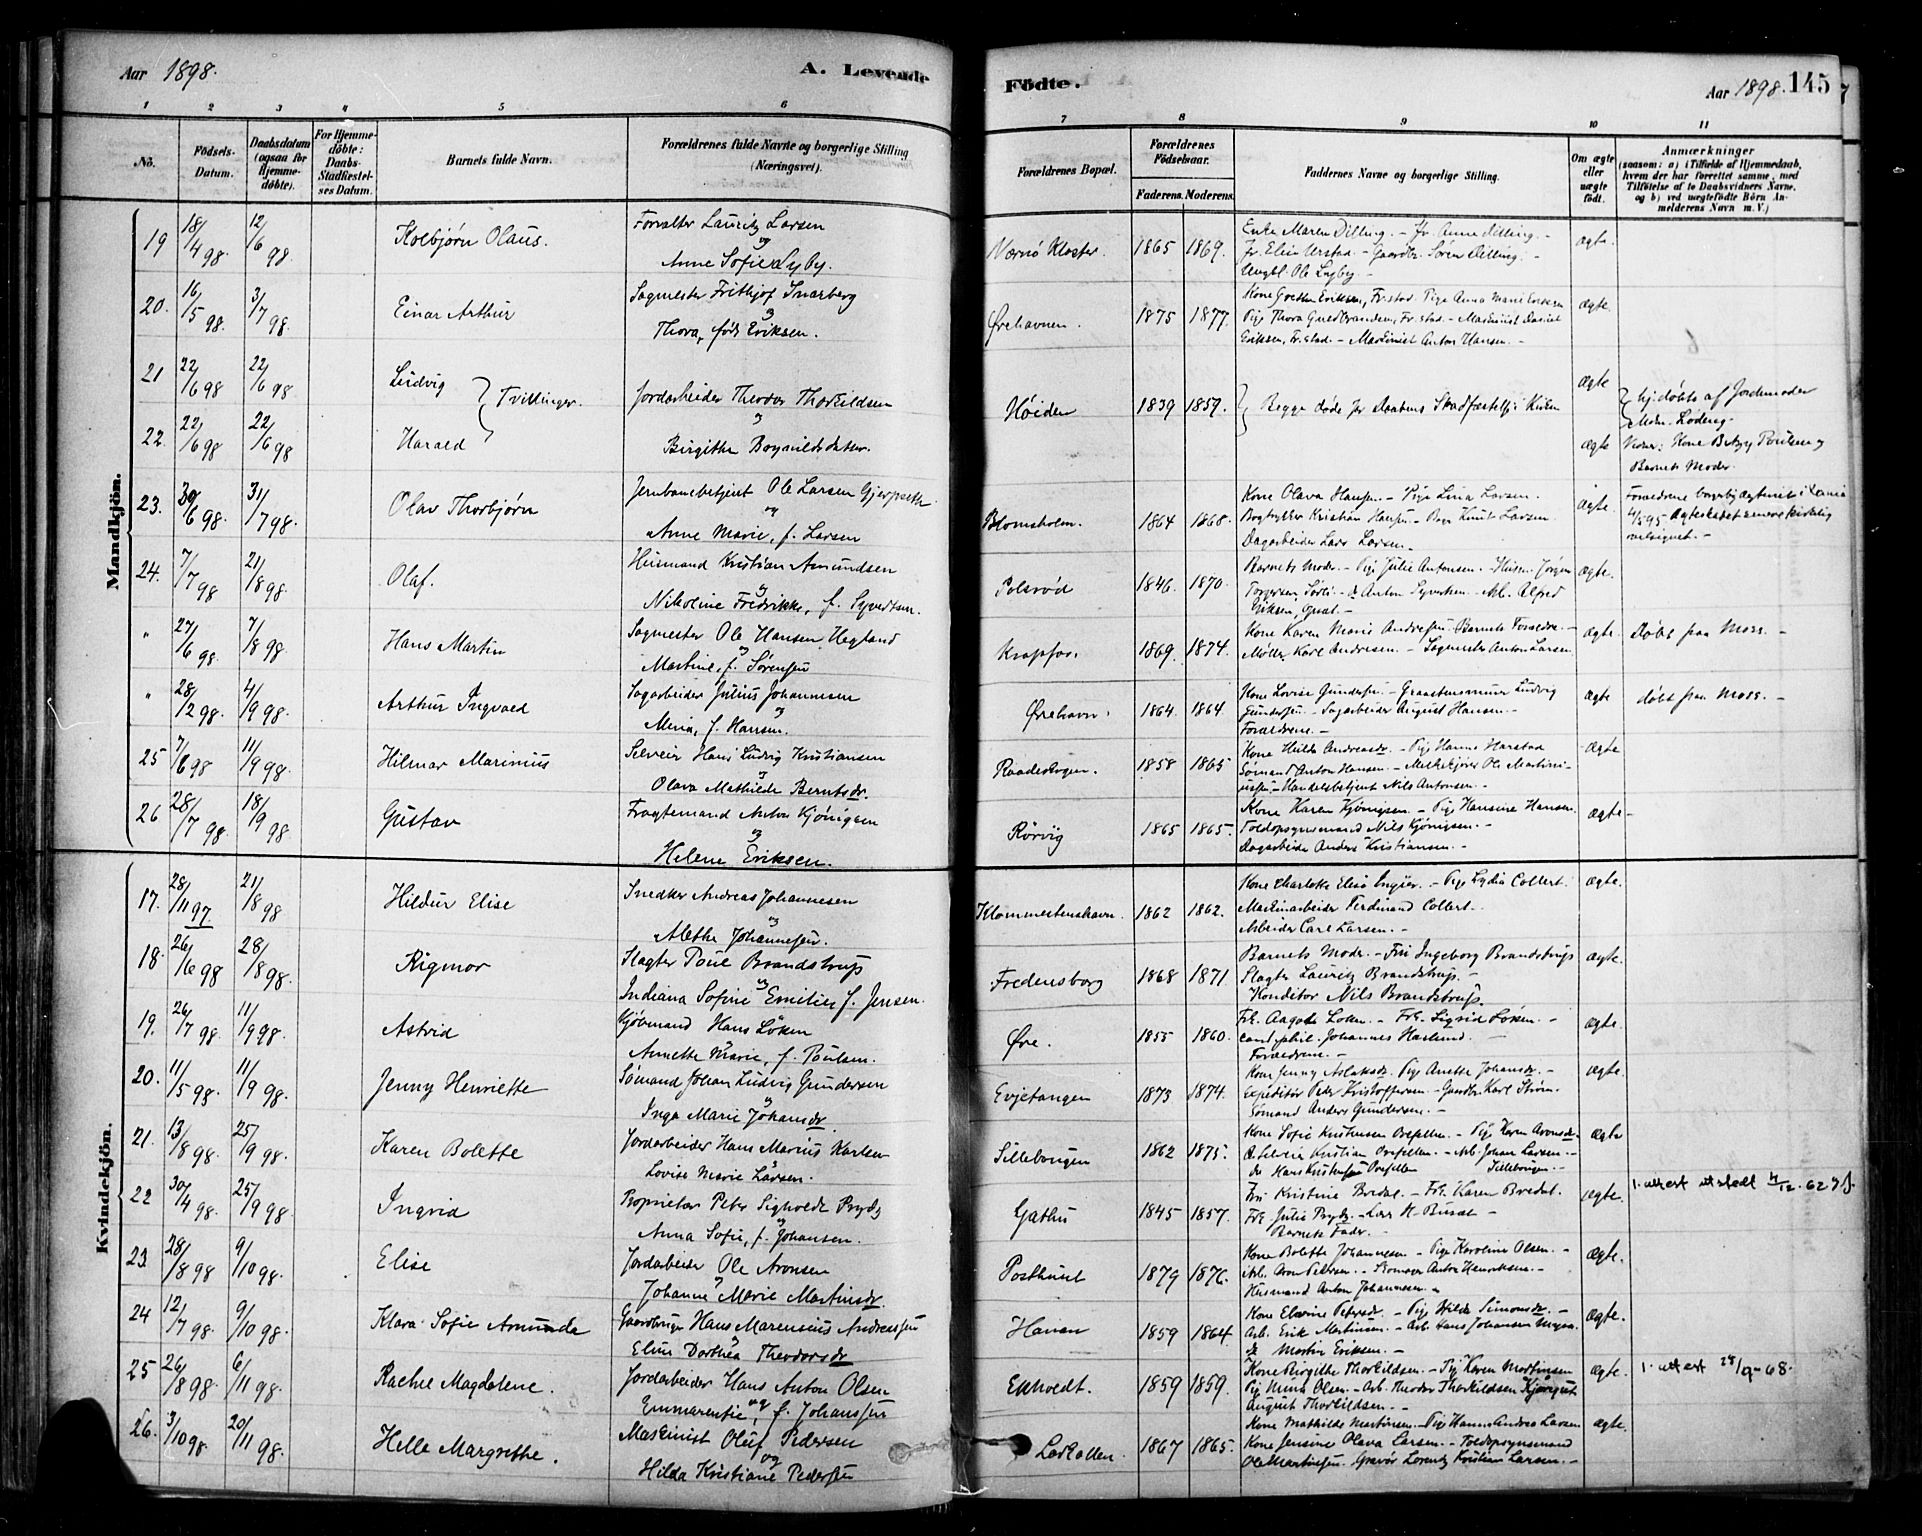 Aar 1898.
A. Levende
Födte.
Aar 1898. 145
1 2 3 4 5 6 7 8 9 10 11
No.
Födsels-Datum.
Daabsdatum (ogsaa for Hjemme-döbte).
For Hjemme-döbte: Daabs-Stadfæstel-ses Datum.
Barnets fulde Navn.
Forældrenes fulde Navne og borgerlige Stilling (Næringsvei).
Forældrenes Bopæl.
Forældrenes Födselsaar.
Faderens. Moderens.
Faddernes Navne og borgerlige Stilling.
Om ægte eller uægte födt.
Anmærkninger
(saasom: a) i Tilfælde af Hjemmedaab, hvem der har forrettet samme, med Tilföielse af to Daabsvidners Navne, og b) ved uægtefödte Börn An-melderens Navn m. V.)
Mandkjön.
19 18/4 98. 12/6 98 Kolbjørn Olaus. Forvalter Lauritz Larsen og Anne Sofie Lyby. Værnø Kloster. 1865 1869. Enke Maren Dilling. - Fr. Anne Dilling. - Fr. Elise Urstad. - Gaardbr. Søren Dilling. - Ungkl. Ole Lyby. - ægte.
20. 16/5 98. 3/7 98. Einar Arthur Sagmester Frithjof Snarberg og Thora, født Eriksen. Ørehavnen. 1875 1877. Kone Eriksen, Fr.stad. Pige Anna Marie Eriksen Pige Thora Guldbrandsen, Fr.stad. - Maskinist Daniel Eriksen, Fr.stad. - Maskinist Anton Hansen. - ægte.
21 22/6 98 22/6 98 Ludvig } Tvillinger. Jordarbeider Theodor Thorkildsen og Høiden 1839 1859. Begge døde før Daabens Stadfæstelse i Kirken ægte hj.døbte af Jordemoder
22. 22/6 98 22/6 98 Harald Birgithe Bognildsdatter. ægte Vidner: Kone Betzy Poulsen og Barnets Moder.
23. 30/6 98. 31/7 98. Olav Thorbjørn Jernbanebetjent Ole Larsen og Anne Marie, f. Larsen Blomsholm. 1864 1868. Kone Olava Hansen. - Pige Lina Larsen. Bogtrykker Kristian Hansen. - Knut Larsen. Dagarbeider Lars Larsen. - ægte. Forældrene borgerlig ægteviet i velsignet. -
24. 7/7 98 21/8 98. Olaf. Husmand Kristian Amundsen og Nikoline Fredrikke, f. Syvertsen. Polsrød 1846. 1870. Barnets Moder. - Pige Julie Antonsen. - Jørgen Torgersen, - Anton Syvertsen. - Arb. Alfred Eriksen, - ægte.
" 27/6 98. 7/8 98 Hans Martin Sagmester Ole Hansen Hegland og Martine, f. Sørensen Krapfos. 1869. 1874. Kone Karen Marie Andresen. Barnets Forældre. - Møller Karl Andresen. - Sagmester Anton Larsen. ægte. Døbt paa Moss. -
" 28/2 98. 4/9 98. Arthur Ingvald Sagarbeider Julius Johannesen og Mina, f. Hansen. Ørehavn. 1864. 1864 Kone Lovise Gundersen. - Graastensmurer Ludvig Gundersen. - Sagarbeider August Hansen. - Forældrene. - ægte døbt paa Moss. -
25 7/6 98 11/9 98. Hilmar Marinius Selveier Hans Ludvig Kristiansen og Olava Mathilde Berntsdr. Raadeskogen. 1858 1865 Kone Hilda Andreasdr. - Pige Hanna Harstad Sømand Anton Hansen. - Melkekjører Ole Martini-ussen. - Handelsbetjent Nils Antonsen. - ægte
26 28/7 98. 18/9 98. Gustav Fragtemand Anton Kjønigsen og Helene Eriksen. Rørvig 1865 1865. Kone Karen Kjønigsen. - Pige Hansine Hansen. Toldopsynsmand Nils Kjønigsen. - Dagarbeider Anders Kristiansen. - ægte -
Kvindekjön.
17. 28/11 97. 21/8 98 Hildur Elise Snedker Andreas Johannesen og Alethe Johannesen. Klommestenshavn. 1862 1862. Kone Charlotte Elise - Pige Lydia Collert. Maskinarbeider Ferdinand Collert. - Arbeider Carl Larsen. - ægte.
18. 26/6 98 28/8 98. Rigmor Slagter Poul Brandstrup og Indiana Sofine Emilie, f. Jensen. Fredensborg 1868 1871. Barnets Moder - Fru Ingeborg Brandstrup Slagter Lauritz Brandstrup. - Konditor Nils Brandstrup. ægte.
19. 26/7 98 11/9 98. Astrid Kjøbmand Hans Løken og Annette Marie, f. Poulsen. Øre. 1855 1860. Frk. Aagot Løken. - Frk. Sigrid Løken. - cand. phil. Johannes Haslund. - Forældrene. - ægte.
20. 11/5 98. 11/9 98. Jenny Henriette Sømand Johan Ludvig Gundersen og Inga Marie Johansdr. Evjetangen 1873 1874. Kone Jenny Aslaksdr. Pige Anette Johansdr. - Expeditør Peter Kristoffersen - Gaardbr. Karl Strøm. Sømand Anders Gundersen. - ægte.
21. 13/8 98. 25/9 98. Karen Bolette Jordarbeider Hans Marius Karlsen Lovise Marie Larsen. Sillebøugen 1862 1875. Kone Sofie Kristensen - Pige Karen Aronsdr. Kristian - Arb. Johan Larsen. - ægte
22 30/4 98. 25/9 98. Ingrid Proprietær Peter Sigholdt Prydz og Anna Sofie, f. Johansen. Gathu 1845 1857. Fru Kristine Bredal. - Frk. Karen Bredal. Frk. Julie Prydz. - Barnets Fader. ægte. 1. attest utstedt 4/12. 62
23 28/8 98 9/10 98. Elise Jordarbeider Ole Aronsen og Johanne Marie Martinsdr. Posthuset 1879 1876. Kone Bolette Johannesen. - Pige Karoline Olsen. - Arb. Aron Pedersen. - Skomager Anton Henriksen. - Husmand Anton Johannesen. - ægte.
24 12/7 98. 9/10 98. Klara Sofie Amunda Gaardbruger Hans Marensius Andreassen og Eline Dorthea Theodorsdr Haven 1859 1864 Kone Petersdr. - Pige Hilda Simonsdr. - Arb. Erik Martinsen. - Arb. Hans Johansen do Martin Eriksen. - ægte.
25 26/8 98. 6/11 98. Rachel Magdalene. Jordarbeider Hans Anton Olsen og Emmarentie, f. Johanssen Ekholdt. 1859 1859. Kone Birgithe Thorkildsen. - Pige Karen Martinsen Pige Mina Olsen. - Arb. Theodor Thorkildsen August Thorkildsen. - ægte. 1. attest 28/9-68.
26. 3/10 98. 20/11 98. Helle Margrethe. Maskinist Oluf Pedersen og Hilda Kristiane Pedersen Larkollen. 1867 1865. Kone Mathilde Martinsen. - Pige Hanna Andrea Larsen Kone Jensine Olava Larsen. - Toldopsynsmand Ole Martinsen. Gravør Lorentz Kristian Larsen. - ægte.